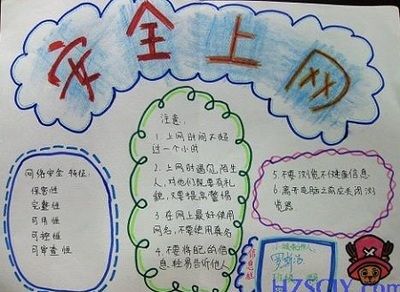 安全上网
网络安全 特征:
保密性
完整性
可用性
可控性
可审查性
注意:
1. 上网时间不超
过一个小时
2. 上网时遇见陌生
人,对他们既要有礼
貌,又要提高警惕
3. 在网上最好使用
网名,不要使用真名
4. 不要将自己的信
息,轻易告诉他人
5. 不要浏览不健康信息
6. 离开电脑之前应关闭浏
览器
信息报